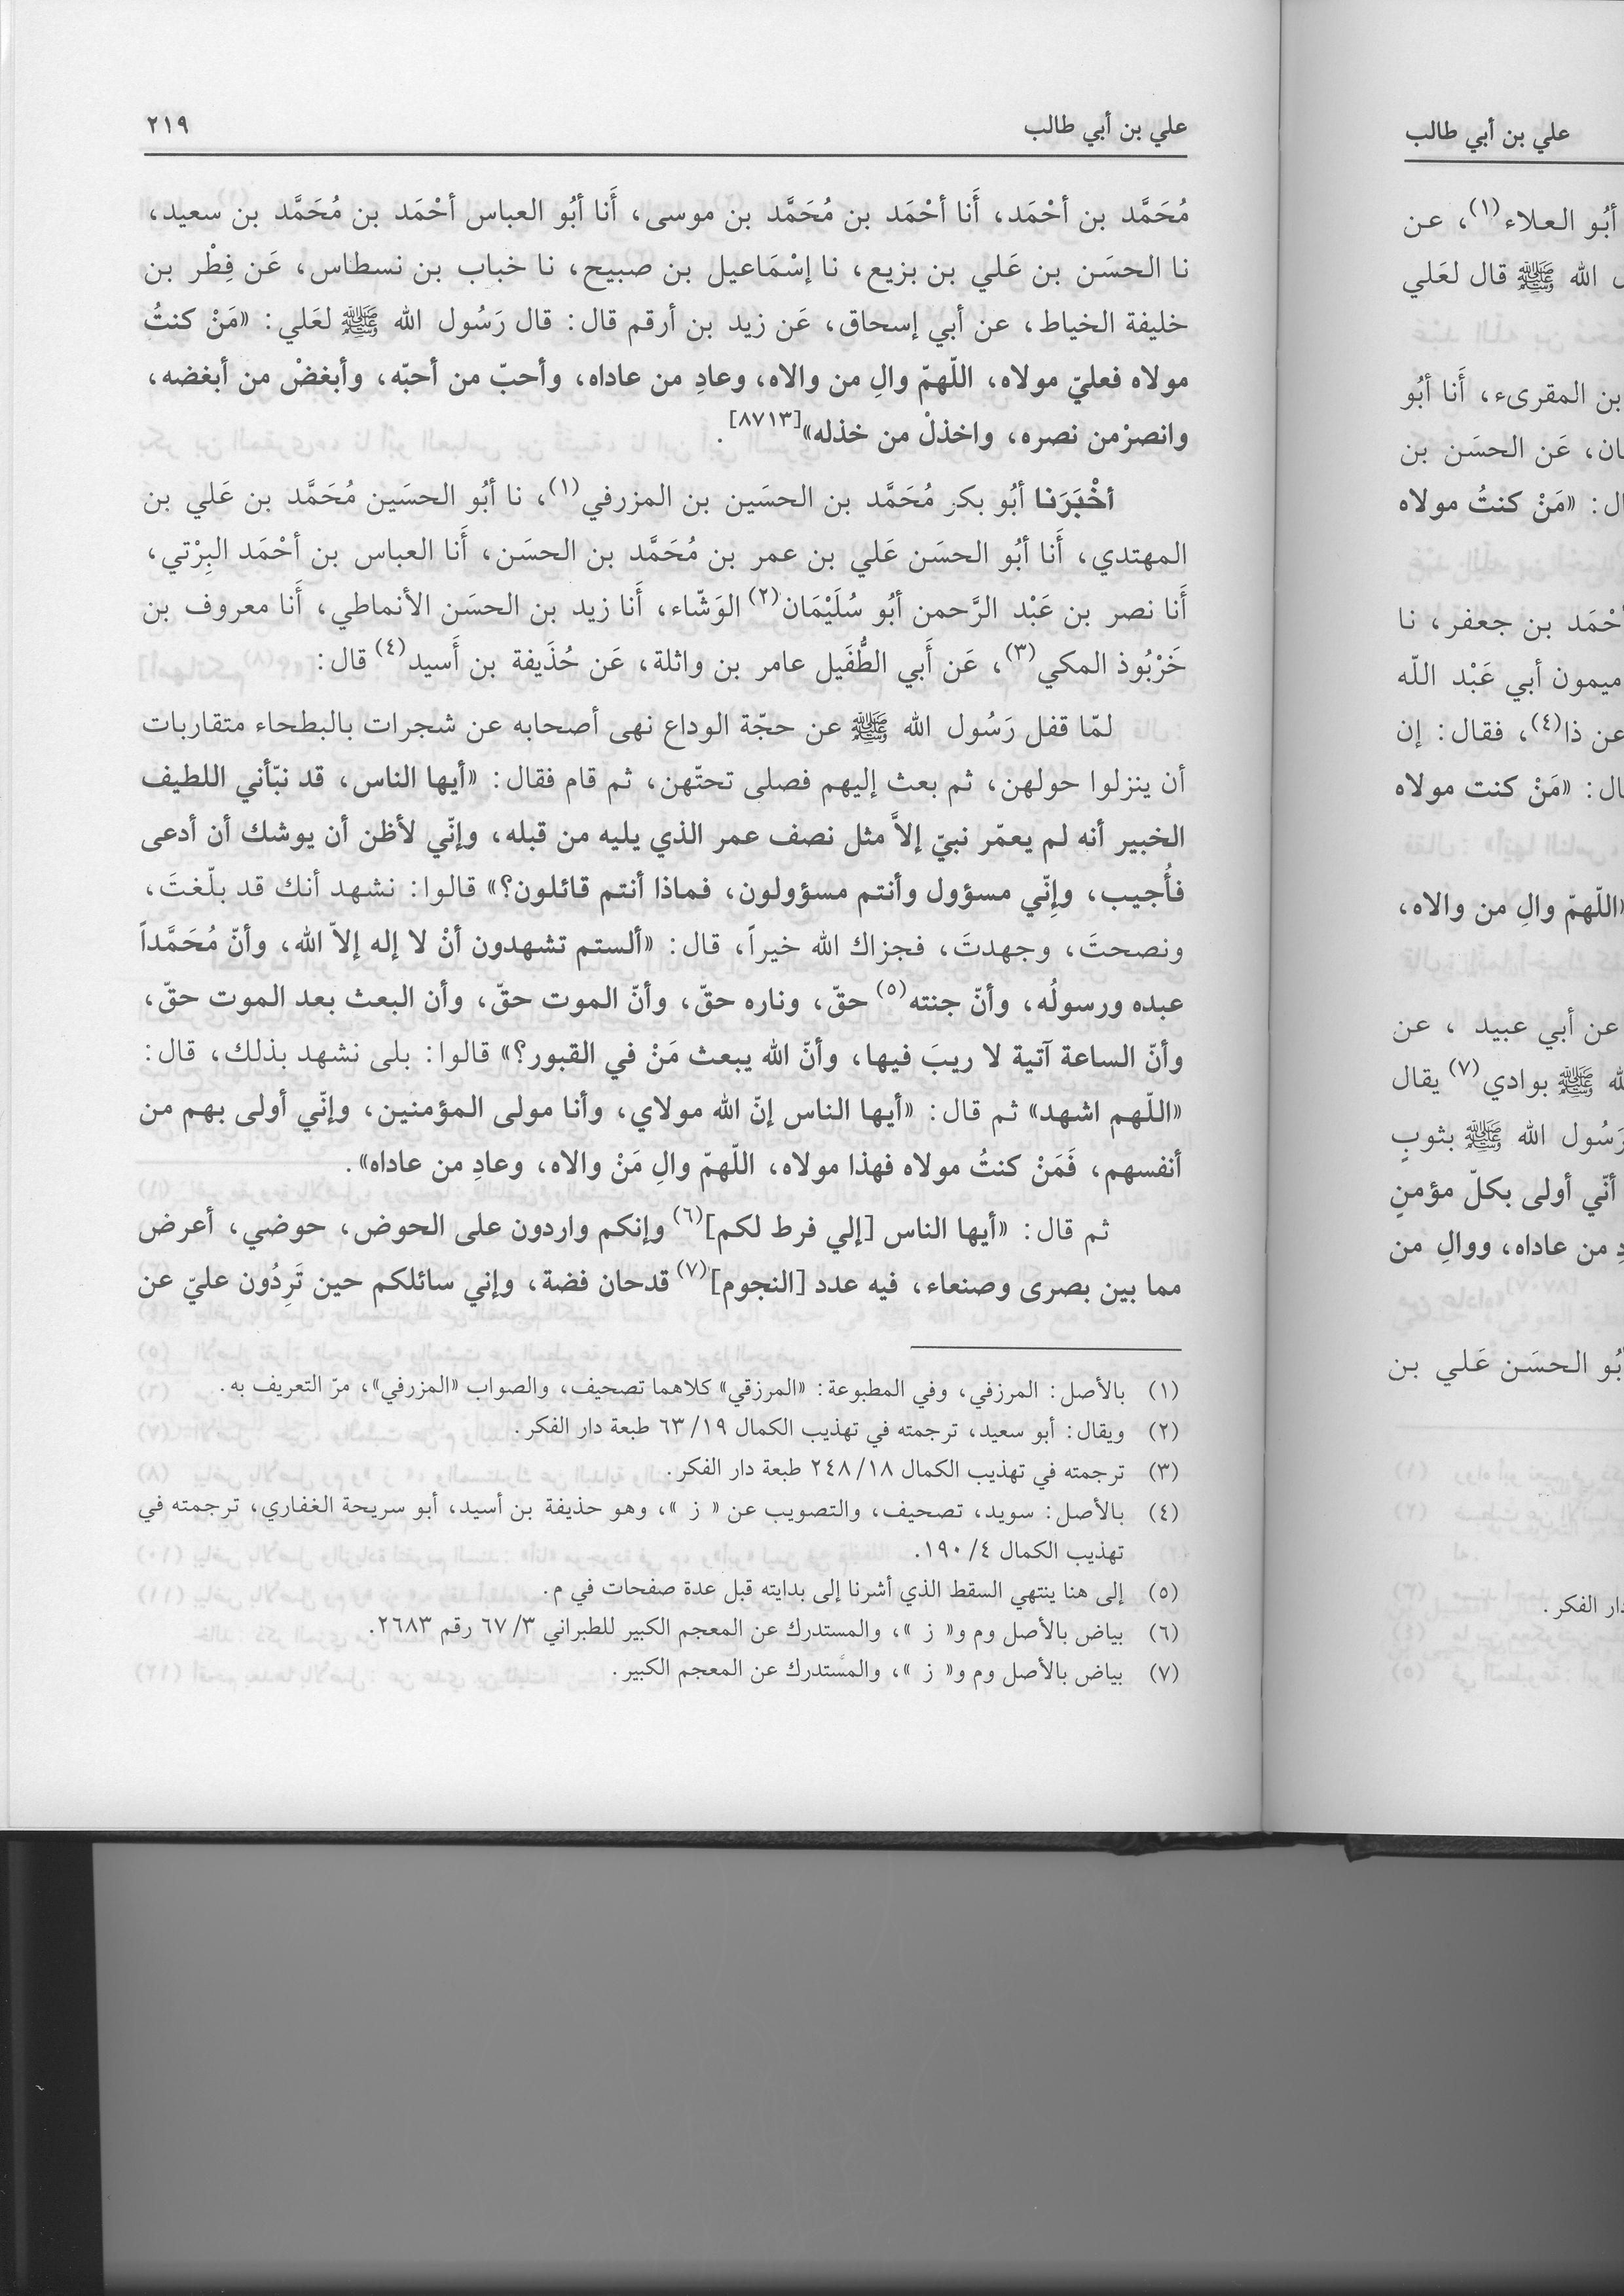 علي بن أبي طالب
٢١٩
مُحَمَّد بن أحْمَد، أَنا أحْمَد بن مُحَمَّد بن موسى، أَنا أبُو العباس أحْمَد بن مُحَمَّد بن سعيد،
نا الحسَن بن عَلي بن بزيع، نا إسْمَاعيل بن صبيح، نا خباب بن نسطاس، عَن فِطْر بن
خليفة الخياط، عن أبي إسحاق، عَن زيد بن أرقم قال: قال رَسُول الله ﷺ لعَلي: «مَنْ كنتُ
مولاه فعليّ مولاه، اللّهمّ والِ من والاه، وعادِ من عاداه، وأحبّ من أحبّه، وأبغضْ من أبغضه،
وانصرْ من نصره، واخذلْ من خذله»[٨٧١٣].
أخْبَرَنا أبُو بكر مُحَمَّد بن الحسَين بن المزرفي(١)، نا أبُو الحسَين مُحَمَّد بن عَلي بن
المهتدي، أَنا أبُو الحسَن عَلي بن عمر بن مُحَمَّد بن الحسَن، أَنا العباس بن أحْمَد البِرْتي،
أَنا نصر بن عَبْد الرَّحمن أبُو سُلَيْمَان(٢) الوَشّاء، أَنا زيد بن الحسَن الأنماطي، أَنا معروف بن
خَرْبُوذ المكي(٣)، عَن أَبي الطُّفَيل عامر بن واثلة، عَن حُذَيفة بن أَسيد(٤) قال:
لمّا قفل رَسُول الله ﷺ عن حجّة الوداع نهى أصحابه عن شجرات بالبطحاء متقاربات
أن ينزلوا حولهن، ثم بعث إليهم فصلى تحتّهن، ثم قام فقال: «أيها الناس، قد نبّأني اللطيف
الخبير أنه لم يعمّر نبيّ إلاَّ مثل نصف عمر الذي يليه من قبله، وإنّي لأظن أن يوشك أن أدعى
فأُجيب، وإنّي مسؤول وأنتم مسؤولون، فماذا أنتم قائلون؟» قالوا: نشهد أنك قد بلّغتَ،
ونصحتَ، وجهدتَ، فجزاك الله خيراً، قال: «ألستم تشهدون أنْ لا إله إلاّ الله، وأنّ مُحَمَّداً
عبده ورسولُه، وأنّ جنته(٥) حقّ، وناره حقّ، وأنّ الموت حقّ، وأن البعث بعد الموت حقّ،
وأنّ الساعة آتية لا ريبَ فيها، وأنّ الله يبعث مَنْ في القبور؟» قالوا: بلى نشهد بذلك، قال:
«اللّهم اشهد» ثم قال: «أيها الناس إنّ الله مولاي، وأنا مولى المؤمنين، وإنّي أولى بهم من
أنفسهم، فَمَنْ كنتُ مولاه فهذا مولاه، اللّهمّ والِ مَنْ والاه، وعادِ من عاداه».
ثم قال: «أيها الناس [إلي فرط لكم](٦) وإنكم واردون على الحوض، حوضي، أعرض
مما بين بصرى وصنعاء، فيه عدد [النجوم](٧) قدحان فضة، وإني سائلكم حين تَرِدُون عليّ عن
(١) بالأصل: المرزفي، وفي المطبوعة: «المرزقي» كلاهما تصحيف، والصواب «المزرفي»، مرّ التعريف به.
(٢) ويقال: أبو سعيد، ترجمته في تهذيب الكمال ١٩/ ٦٣ طبعة دار الفكر.
(٣) ترجمته في تهذيب الكمال ١٨/ ٢٤٨ طبعة دار الفكر.
(٤) بالأصل: سويد، تصحيف، والتصويب عن « ز »، وهو حذيفة بن أسيد، أبو سريحة الغفاري، ترجمته في
تهذيب الكمال ٤/ ١٩٠.
(٥) إلى هنا ينتهي السقط الذي أشرنا إلى بدايته قبل عدة صفحات في م.
(٦) بياض بالأصل وم و« ز »، والمستدرك عن المعجم الكبير للطبراني ٣/ ٦٧ رقم ٢٦٨٣.
(٧) بياض بالأصل وم و« ز »، والمستدرك عن المعجم الكبير.
علي بن أبي طالب
أبُو العلاء(١)، عن
الله ﷺ قال لعَلي
بن المقرىء، أَنا أبُو
عَن الحسَن بن
«مَنْ كنتُ مولاه
بن جعفر، نا
ميمون أبي عَبْد اللّه
عن ذا(٤)، فقال: إن
«مَنْ كنت مولاه
«اللّهمّ والِ من والاه،
عن أبي عبيد ، عن
ﷺ بوادي(٧) يقال
رَسُول الله ﷺ بثوبٍ
أنّي أولى بكلّ مؤمنٍ
من عاداه، ووالِ من
الحسَن عَلي بن
دار الفكر.